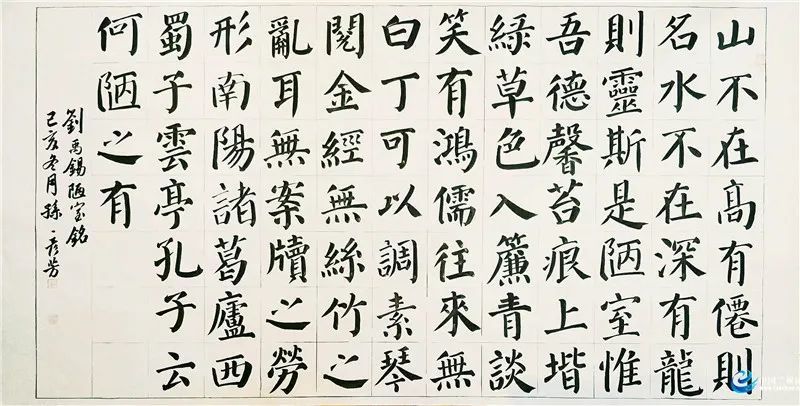 山不在髙有僊則
名水不在深有龍
則靈斯是陋室惟
吾德馨苔痕上堦
綠草色入簾青談
笑有鴻儒往來無
白丁可以調素琴
閱金經無絲竹之
亂耳無案牘之勞
形南陽諸葛廬西
蜀子雲亭孔子云
何陋之有
劉禹錫陋室銘
己亥冬月孫彥芳